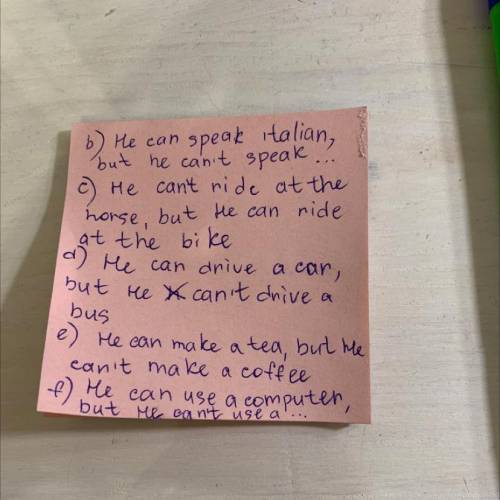 b) He can speak italian,
but he can't speak...
c) He can't ride at the
horse, but He can ride
at the bike
d) He can drive a car,
but He can't drive a
bus
e) He can make a tea, but He
can't make a coffee
f) He can use a computer,
but He can't use a ...